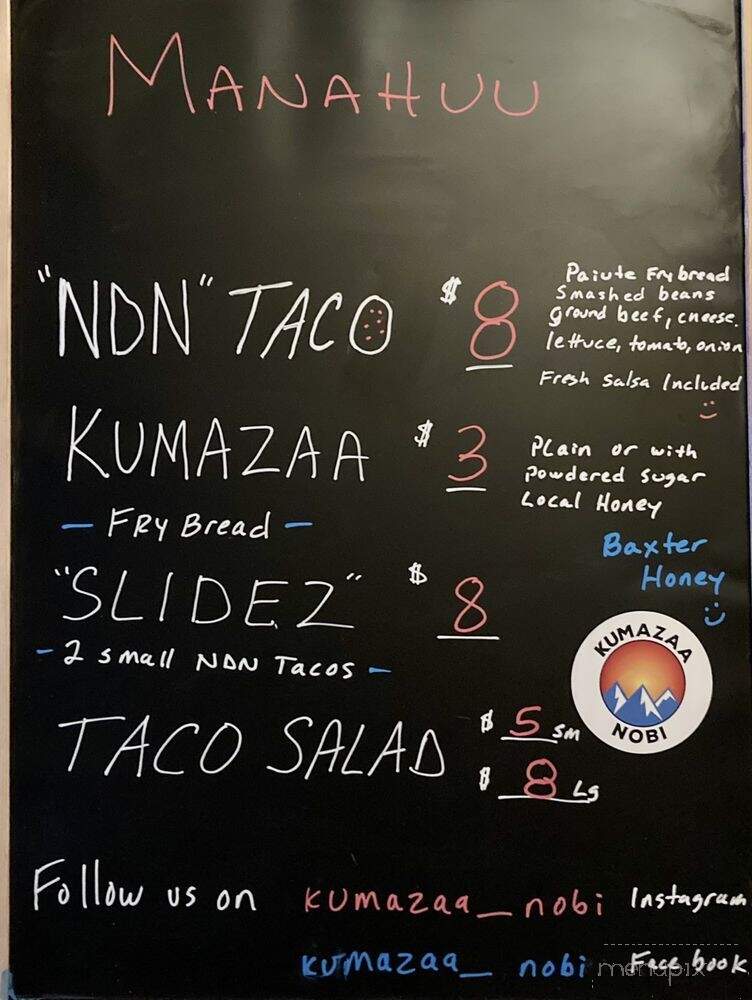 MANAHUU
"NDN" TACO $8
Paiute Frybread
Smashed beans
ground beef, cheese.
lettuce, tomato, onion
Fresh Salsa Included
KUMAZAA $3
Plain or with
Powdered Sugar
Local Honey
- FRY Bread -
Baxter
Honey
"SLIDEZ" $8
- 2 small NDN Tacos -
KUMAZAA
NOBI
TACO SALAD $5 sm
$8 Lg
Follow us on kumazaa_nobi Instagram
kumazaa_nobi Facebook
menupix